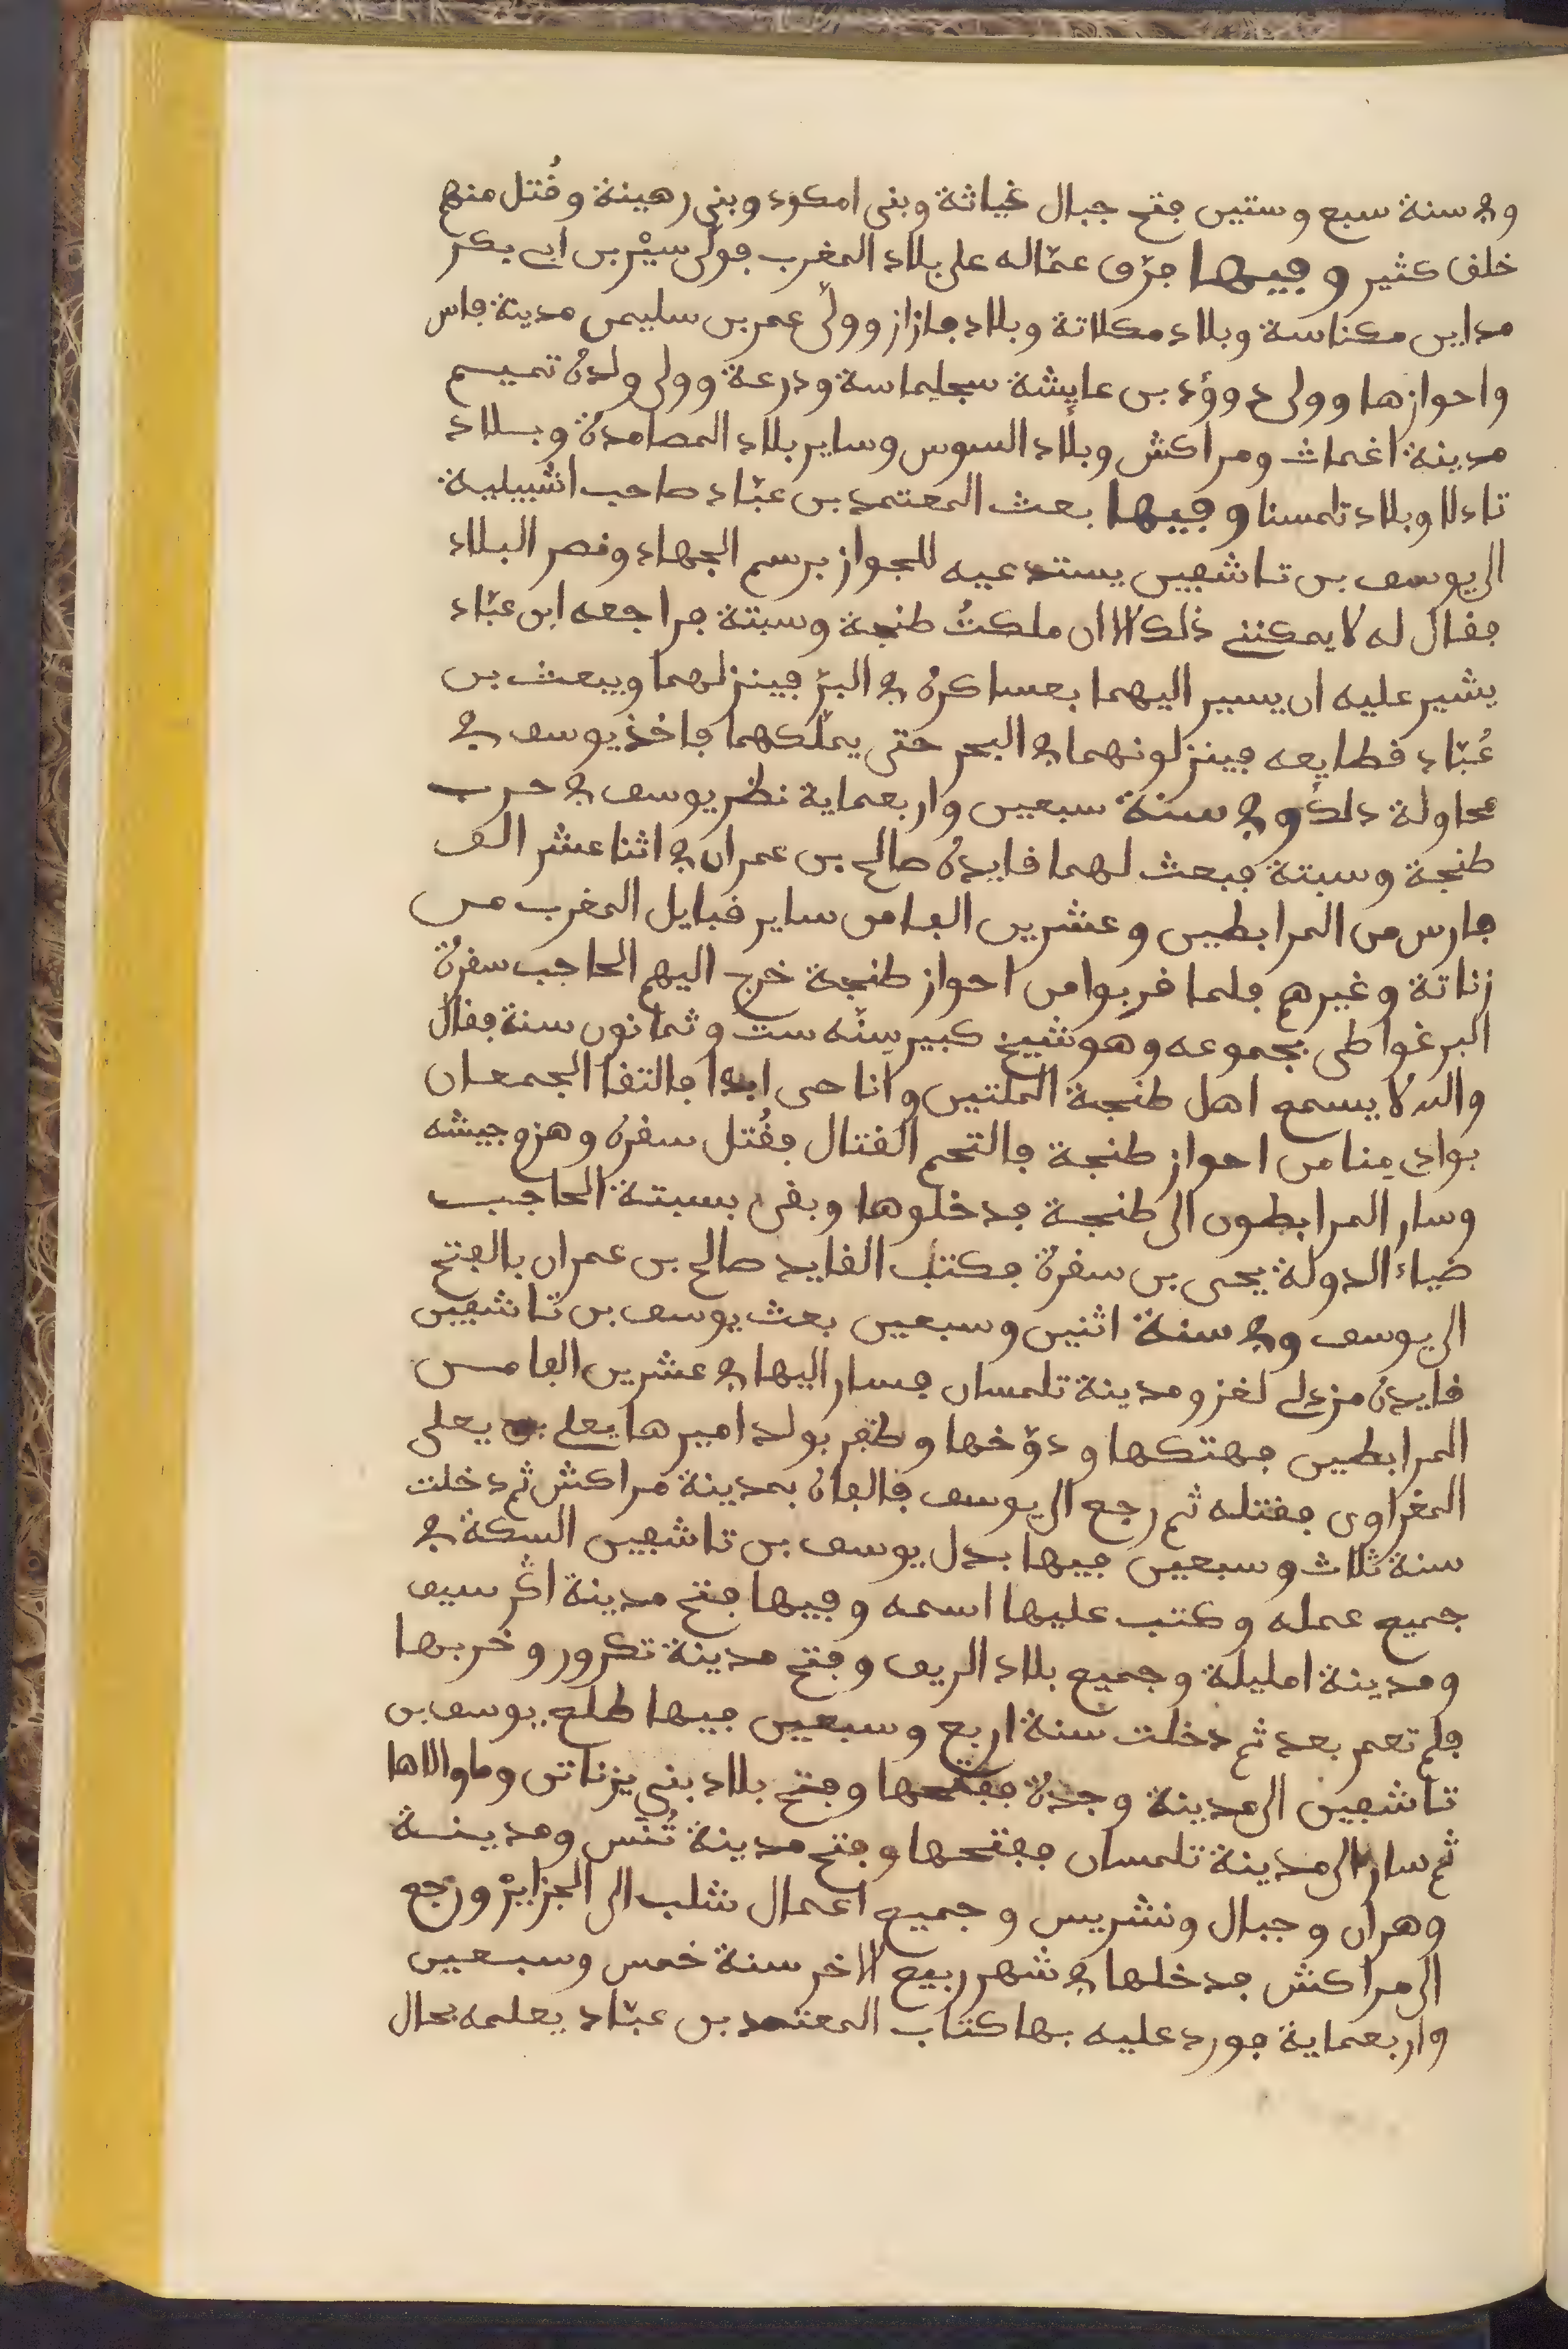 وفي سنة سبع وستين فتح جبال غياثة وبني امكود وبني رهينة وقُتل منهم
خلق كثير وفيها فرّق عمّاله على بلاد المغرب فولّى سيْر بن ابي بكر
مداين مكناسة وبلاد مكلاتة وبلاد فازاز وولّى عمر بن سليمن مدينة فاس
واحوازها وولى دوؤد بن عايشة سجلماسة ودرعة وولى ولده تميم
مدينة اغمات ومراكش وبلاد السوس وساير بلاد المصامدة وبلاد
تادلا وبلاد تامسنا وفيها بعث المعتمد بن عبّاد صاحب اشبيلية
الى يوسف بن تاشفين يستدعيه للجواز برسم الجهاد ونصر البلاد
فقال له لا يمكننے ذلك الا ان ملكتُ طنجة وسبتة فراجعه ابن عبّاد
يشير عليه ان يسير اليهما بعساكره في البرّ فينزلهما ويبعث بن
عُبّاد قطايعه فينزلونهما في البحر حتى يملّكهما فاخذ يوسف في
محاولة ذلك وفي سنة سبعين واربعماية نظر يوسف في حرب
طنجة وسبتة فبعث لهما قايده صالح بن عمران في اثنا عشر الف
فارس من المرابطين وعشرين الفا من ساير قبايل المغرب من
زناتة وغيرهم فلما قربوا من احواز طنجة خرج اليهم الحاجب سقرة
البرغواطى بجموعه وهو شيخ كبير سِنّه ست وثمانون سنة فقال
والله لا يسمع اهل طنجة الملثين وانا حى ابدا فالتقا الجمعان
بوادي مِنا من احواز طنجة فالتحم القتال فقُتل سقرة وهزم جيشه
وسار المرابطون الى طنجة فدخلوها وبقى بسبتة الحاجب
ضياء الدولة يحى بن سقرة فكتب القايد صالح بن عمران بالفتح
الى يوسف وفي سنة اثنين وسبعين بعث يوسف بن تاشفين
قايده مزدلے لغزو مدينة تلمسان فسار اليها في عشرين الفا من
المرابطين فهتكها ودوّخها وظفر بولد اميرها يعلے بن يعلى
المغراوى فقتله ثم رجع الى يوسف فالفاه بمدينة مراكش ثم دخلت
سنة ثلاث وسبعين فيها بدل يوسف بن تاشفين السكة في
جميع عمله وكتب عليها اسمه وفيها فتح مدينة اڭرسيف
ومدينة امليلة وجميع بلاد الريف وفتح مدينة تكرور وخربها
فلم تعمر بعد ثم دخلت سنة اربع وسبعين فيها طلع يوسف بن
تاشفين الى مدينة وجدة ففتحها وفتح بلاد بني يزناتن وما والاها
ثم سار الى مدينة تلمسان ففتحها وفتح مدينة تُنَس ومدينة
وهران وجبال ونشريس وجميع اعمال شلب الى الجزايْر ورجع
الى مراكش فدخلها في شهر ربيع الاخر سنة خمس وسبعين
واربعماية فورد عليه بها كتاب المعتمد بن عبّاد يعلمه بحال